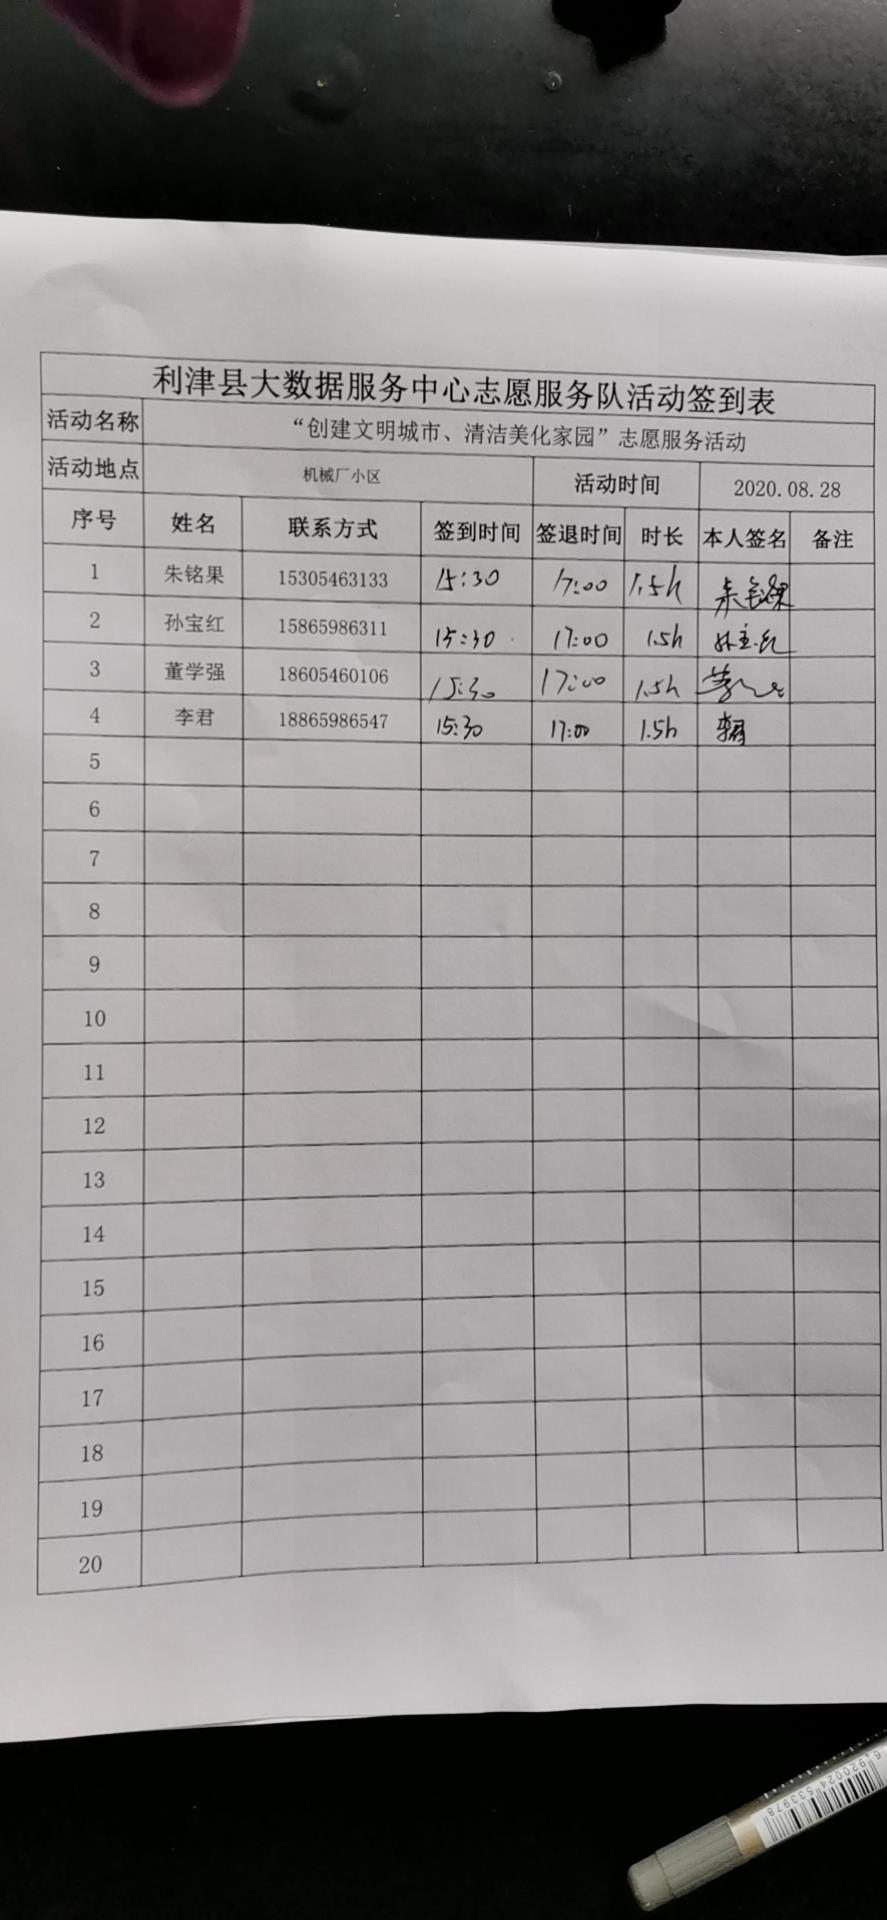 利津县大数据服务中心志愿服务队活动签到表
活动名称 “创建文明城市、清洁美化家园”志愿服务活动
活动地点 机械厂小区 活动时间 2020.08.28
序号 姓名 联系方式 签到时间 签退时间 时长 本人签名 备注
1 朱铭果 15305463133 15:30 17:00 1.5h 朱铭果
2 孙宝红 15865986311 15:30 17:00 1.5h
3 董学强 18605460106 15:30 17:00 1.5h
4 李君 18865986547 15:30 17:00 1.5h 李君
5
6
7
8
9
10
11
12
13
14
15
16
17
18
19
20
6 920024 533978